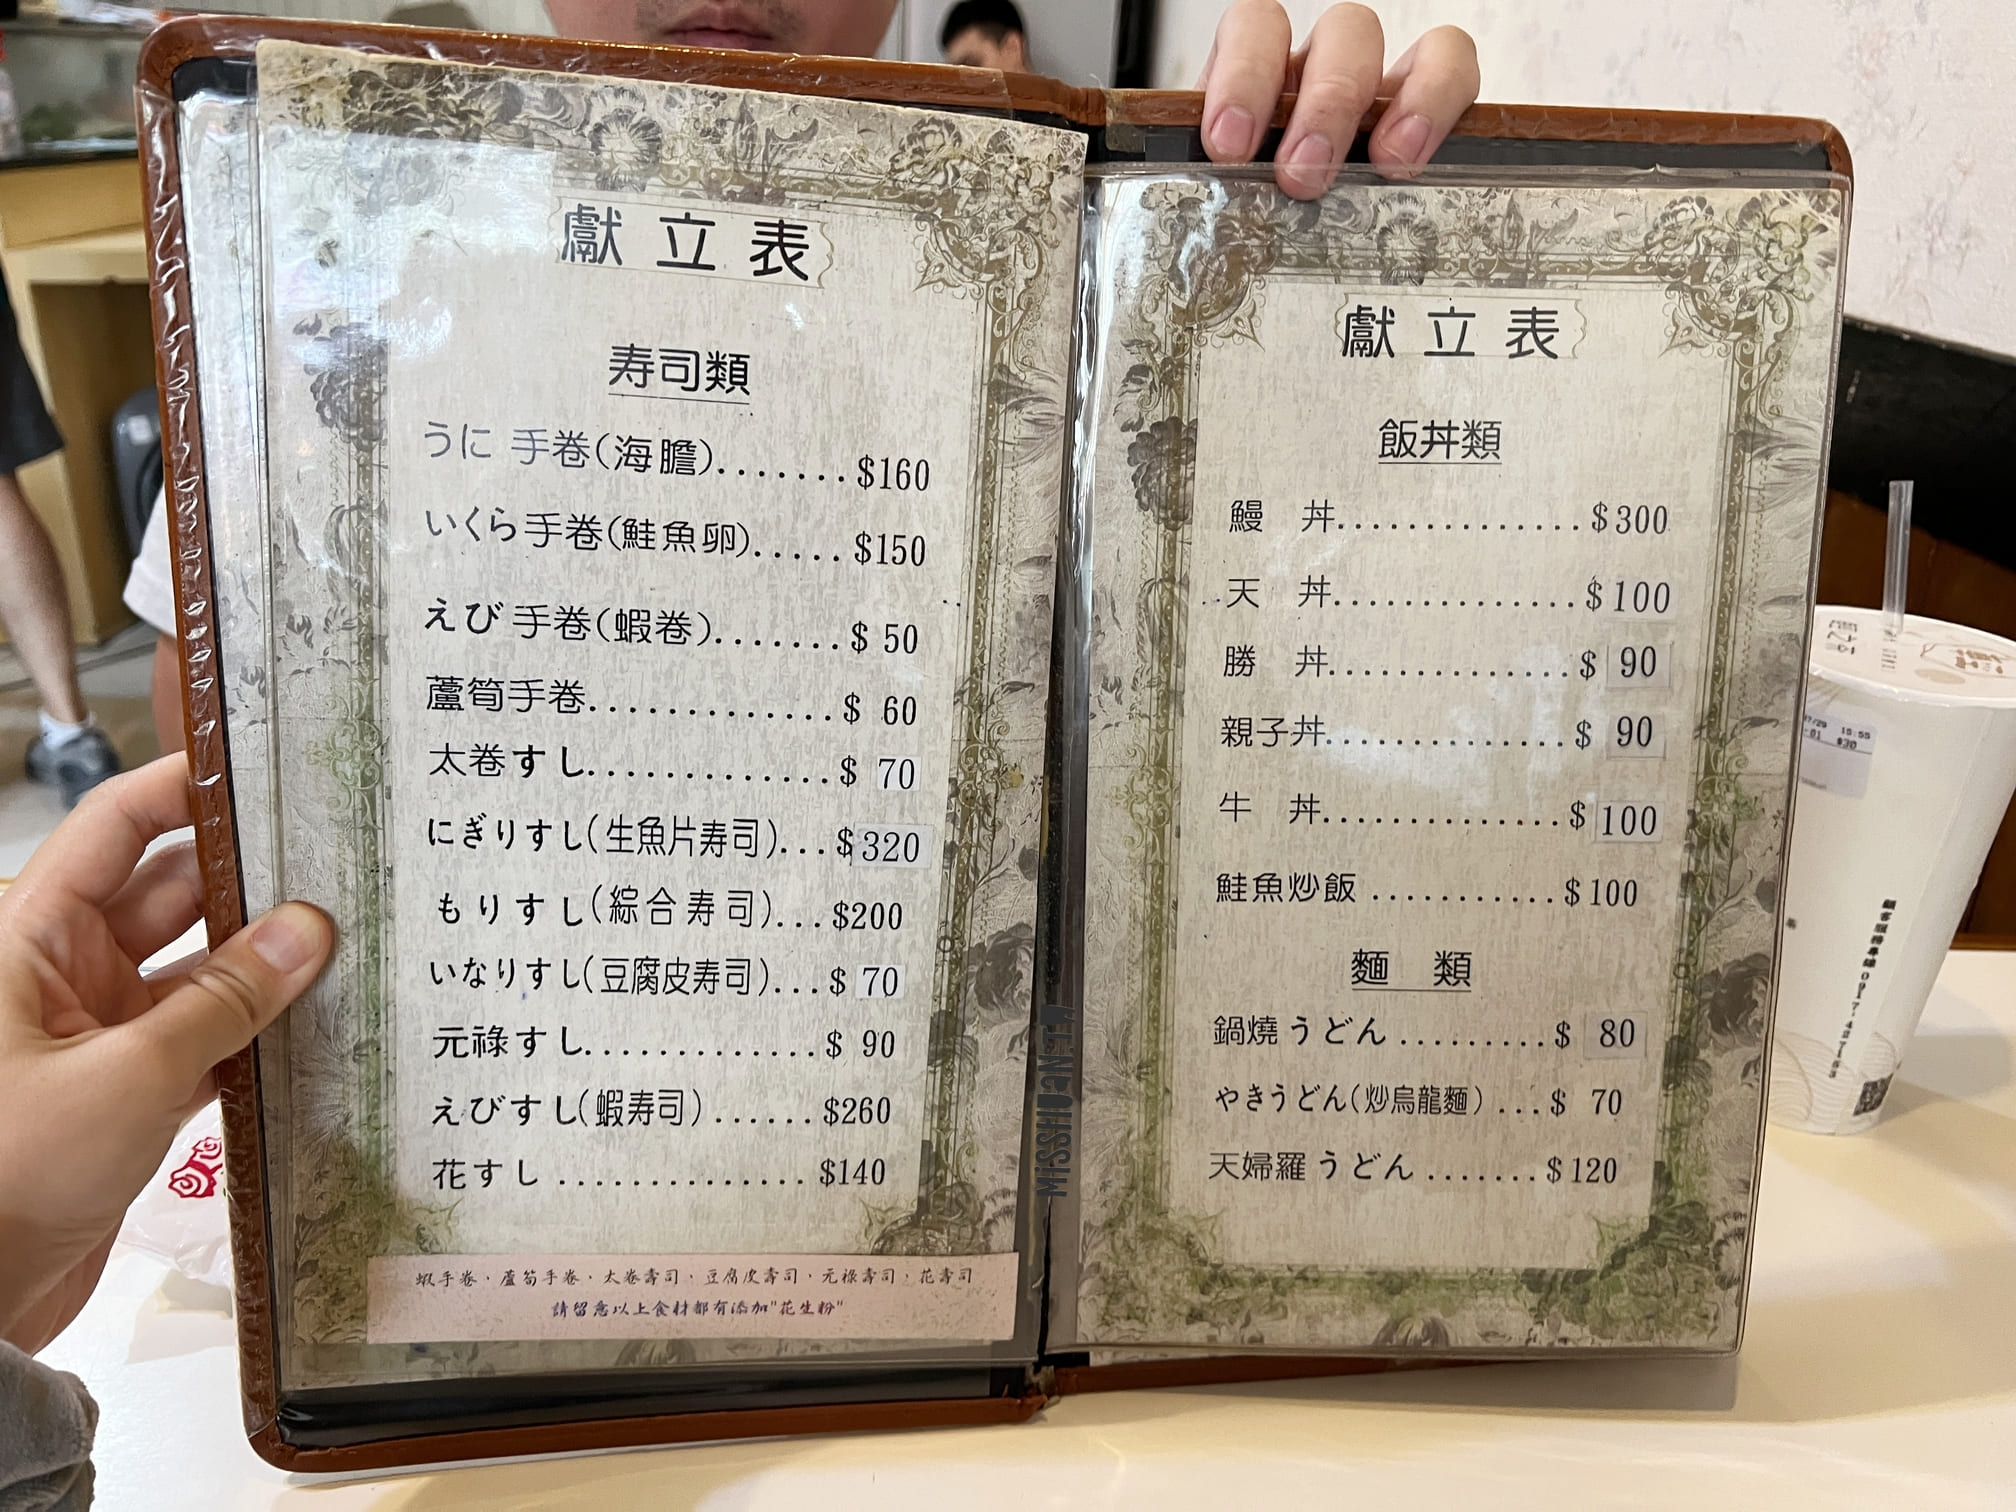 獻立表
寿司類
うに 手卷(海膽).......$160
いくら手卷(鮭魚卵).....$150
えび手卷(蝦卷).......$ 50
蘆筍手卷.............$ 60
太卷すし.............$ 70
にぎりすし(生魚片寿司)...$320
もりすし(綜合寿司)...$200
いなりすし(豆腐皮寿司)...$ 70
元祿すし.............$ 90
えびすし(蝦寿司)......$260
花すし..............$140
蝦手卷、蘆筍手卷、太卷壽司、豆腐皮壽司、元祿壽司、花壽司
請留意以上食材都有添加"花生粉"
獻立表
飯丼類
鰻 丼..............$300
天 丼..............$100
勝 丼..............$ 90
親子丼..............$ 90
牛 丼..............$100
鮭魚炒飯...........$100
麵 類
鍋燒うどん.........$ 80
やきうどん(炒烏龍麵)...$ 70
天婦羅うどん.......$120
MiSSHUANET
15:55
$30
顧客服務專線